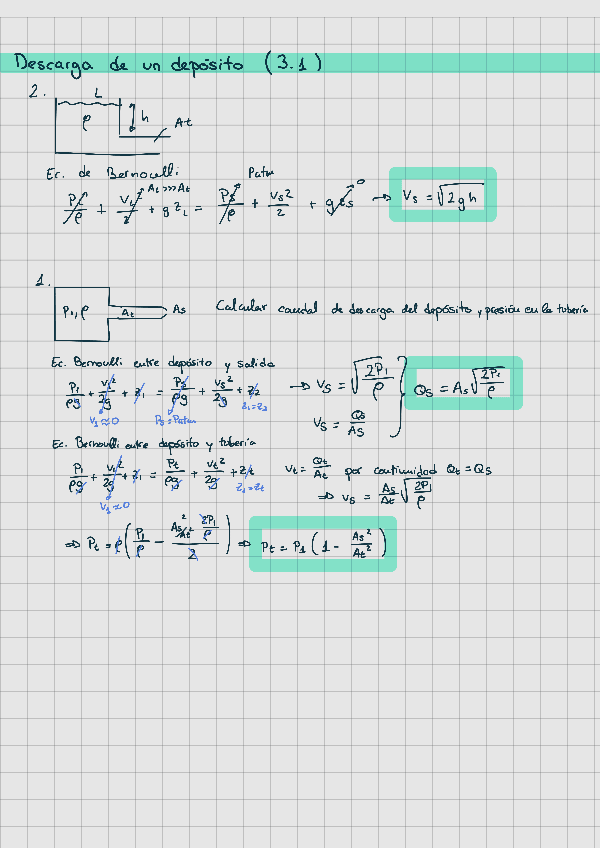 Descarga de un depósito (3.1)
2.
L
ρ h At
Ec. de Bernoulli Patm
P_L/ρ + V_L²/2 + g z_L = P_s/ρ + V_s²/2 + g z_s → V_s = √(2gh)
A_L >>> A_t 0
1.
P₁, ρ At As Calcular caudal de descarga del depósito, y presión en la tubería
Ec. Bernoulli entre depósito y salida
P₁/ρg + V₁²/2g + z₁ = P_s/ρg + V_s²/2g + z₂ → V_s = √(2P₁/ρ)
V₁≈0 P_s=Patm z₁=z₂
V_s = Q_s/A_s } Q_s = A_s √(2P₁/ρ)
Ec. Bernoulli entre depósito y tubería
P₁/ρg + V₁²/2g + z₁ = P_t/ρg + V_t²/2g + z_t
V₁≈0 z₁=z_t
V_t = Q_t/A_t por continuidad Q_t = Q_s
⇒ V_s = A_s/A_t √(2P₁/ρ)
⇒ P_t = ρ (P₁/ρ − (A_s²/A_t² 2P₁/ρ)/2) ⇒ P_t = P₁ (1 − A_s²/A_t²)